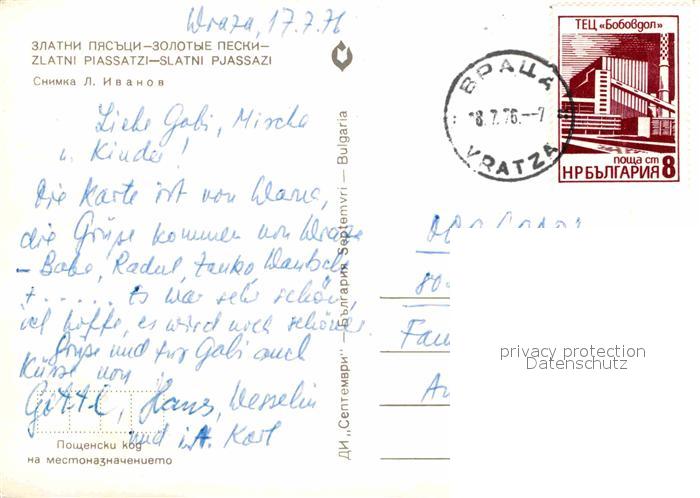 Wraza, 17.7.76
ЗЛАТНИ ПЯСЪЦИ—ЗОЛОТЫЕ ПЕСКИ—
ZLATNI PIASSATZI—SLATNI PJASSAZI
Снимка Л. Иванов
Liebe Gabi, Mischa
u. Kinder!
Die Karte ist von Warna,
die Grüße kommen von Wraza
– Babo, Radul, Zanko
+ ..... Es war sehr schön,
ich hoffe, es wird noch schöner.
Grüße und für Gabi auch
Küsse von
Hans, Wesselin
und i.A. Karl
Пощенски код
на местоназначението
ДИ „Септември" — България Septemvri — Bulgaria
ТЕЦ «Бобовдол»
поща ст
НР БЪЛГАРИЯ 8
ВРАЦА
18.7.76.—7
VRATZA
80
Fam
privacy protection
Datenschutz